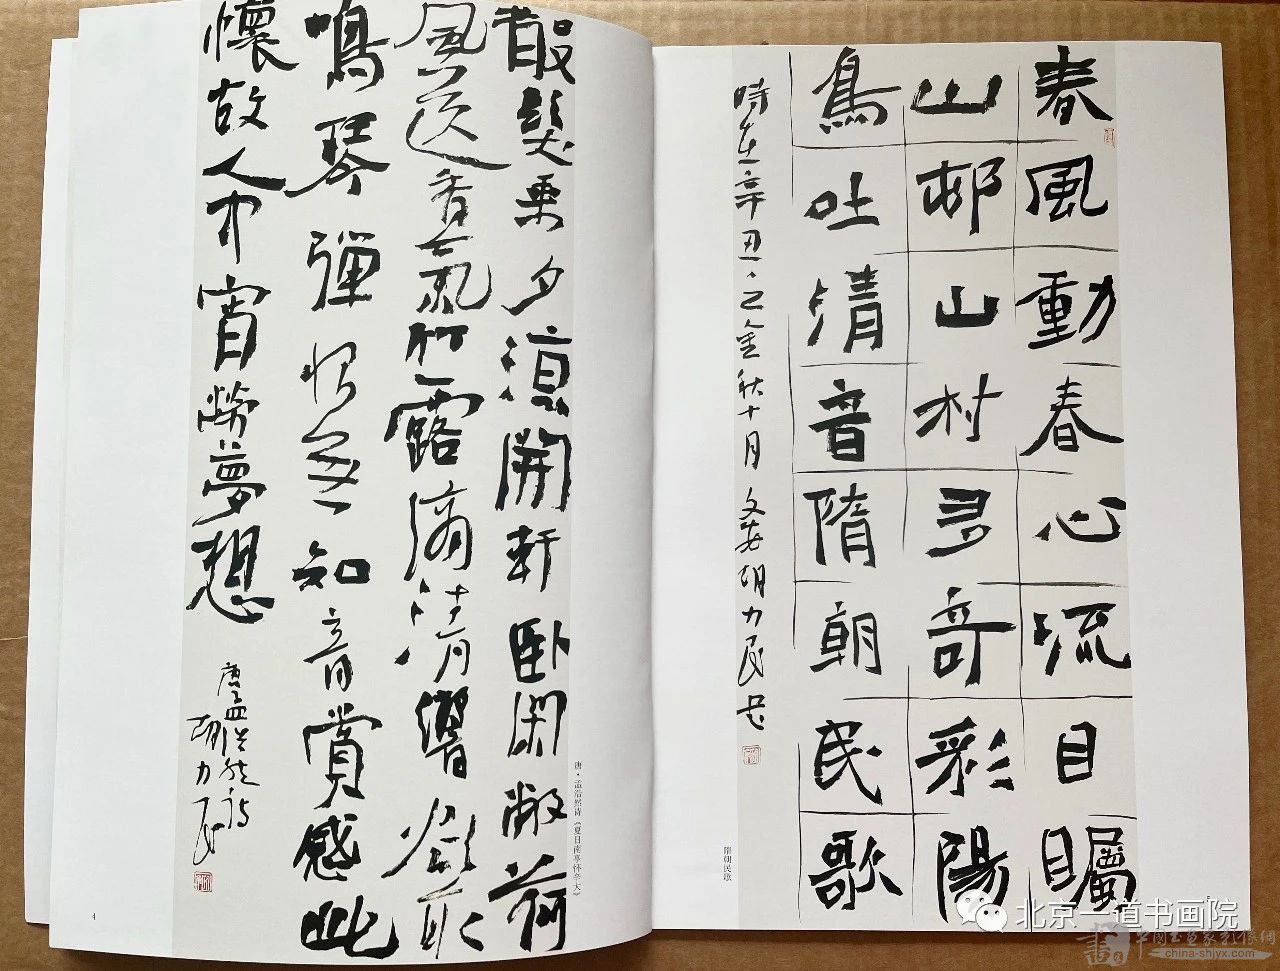 春風動春心流目矚
山邨山村多奇彩陽
鳥吐清音隋朝民歌
時在辛丑之金秋十月文安胡力民书
隋朝民歌
散髮乘夕涼開軒臥閑敞荷
風送香氣竹露滴清響欲取
鳴琴彈恨無知音賞感此
懷故人中宵勞夢想
唐孟浩然诗
胡力民
唐·孟浩然诗《夏日南亭怀辛大》
4
北京一道书画院
中国书画家影像網
china-shjyx.com